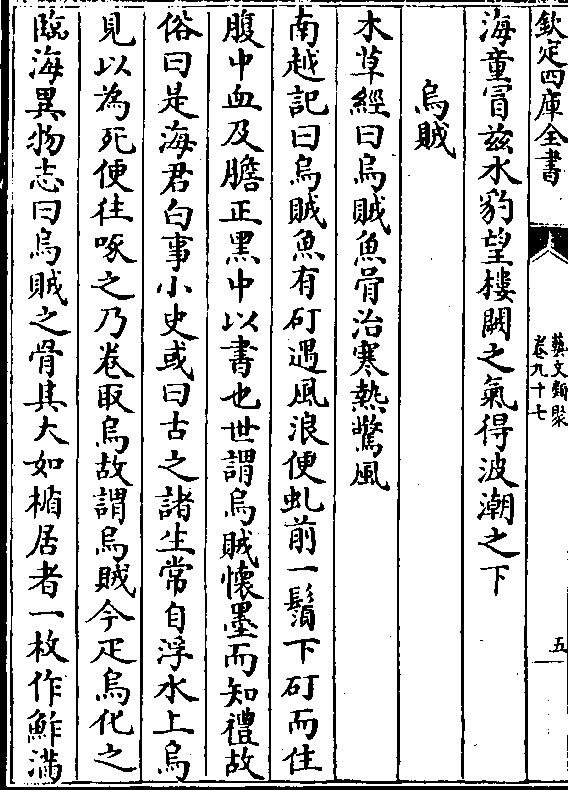 欽定四庫全書
藝文類聚
卷九十七
五
海童冒茲水豹望樓闕之氣得波潮之下
烏賊
水草經曰烏賊魚骨治寒熱驚風
南越記曰烏賊魚有矴遇風浪便虬前一鬚下矴而住
腹中血及膽正黑中以書也世謂烏賊懷墨而知禮故
俗曰是海君白事小史或曰古之諸生常自浮水上烏
見以為死便往啄之乃卷取烏故謂烏賊今疋烏化之
臨海異物志曰烏賊之骨其大如楯居者一枚作鮓滿